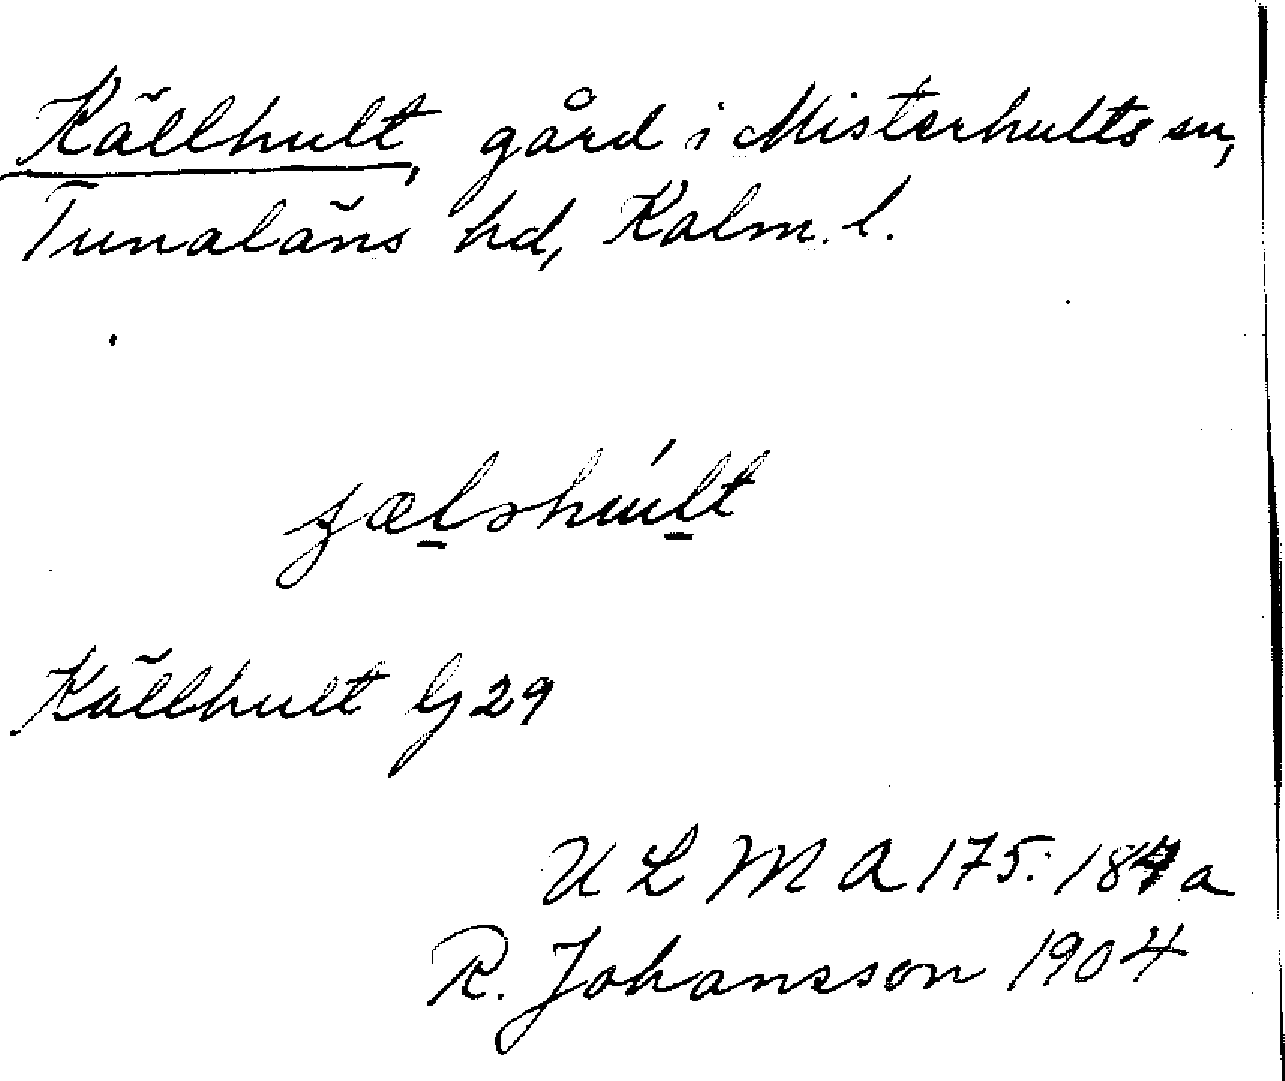 Källhult, gård i Misterhults sn,
Tunaläns hd, Kalm. l.
Källhult G 29
U L M A 175: 184 a
R. Johansson 1904